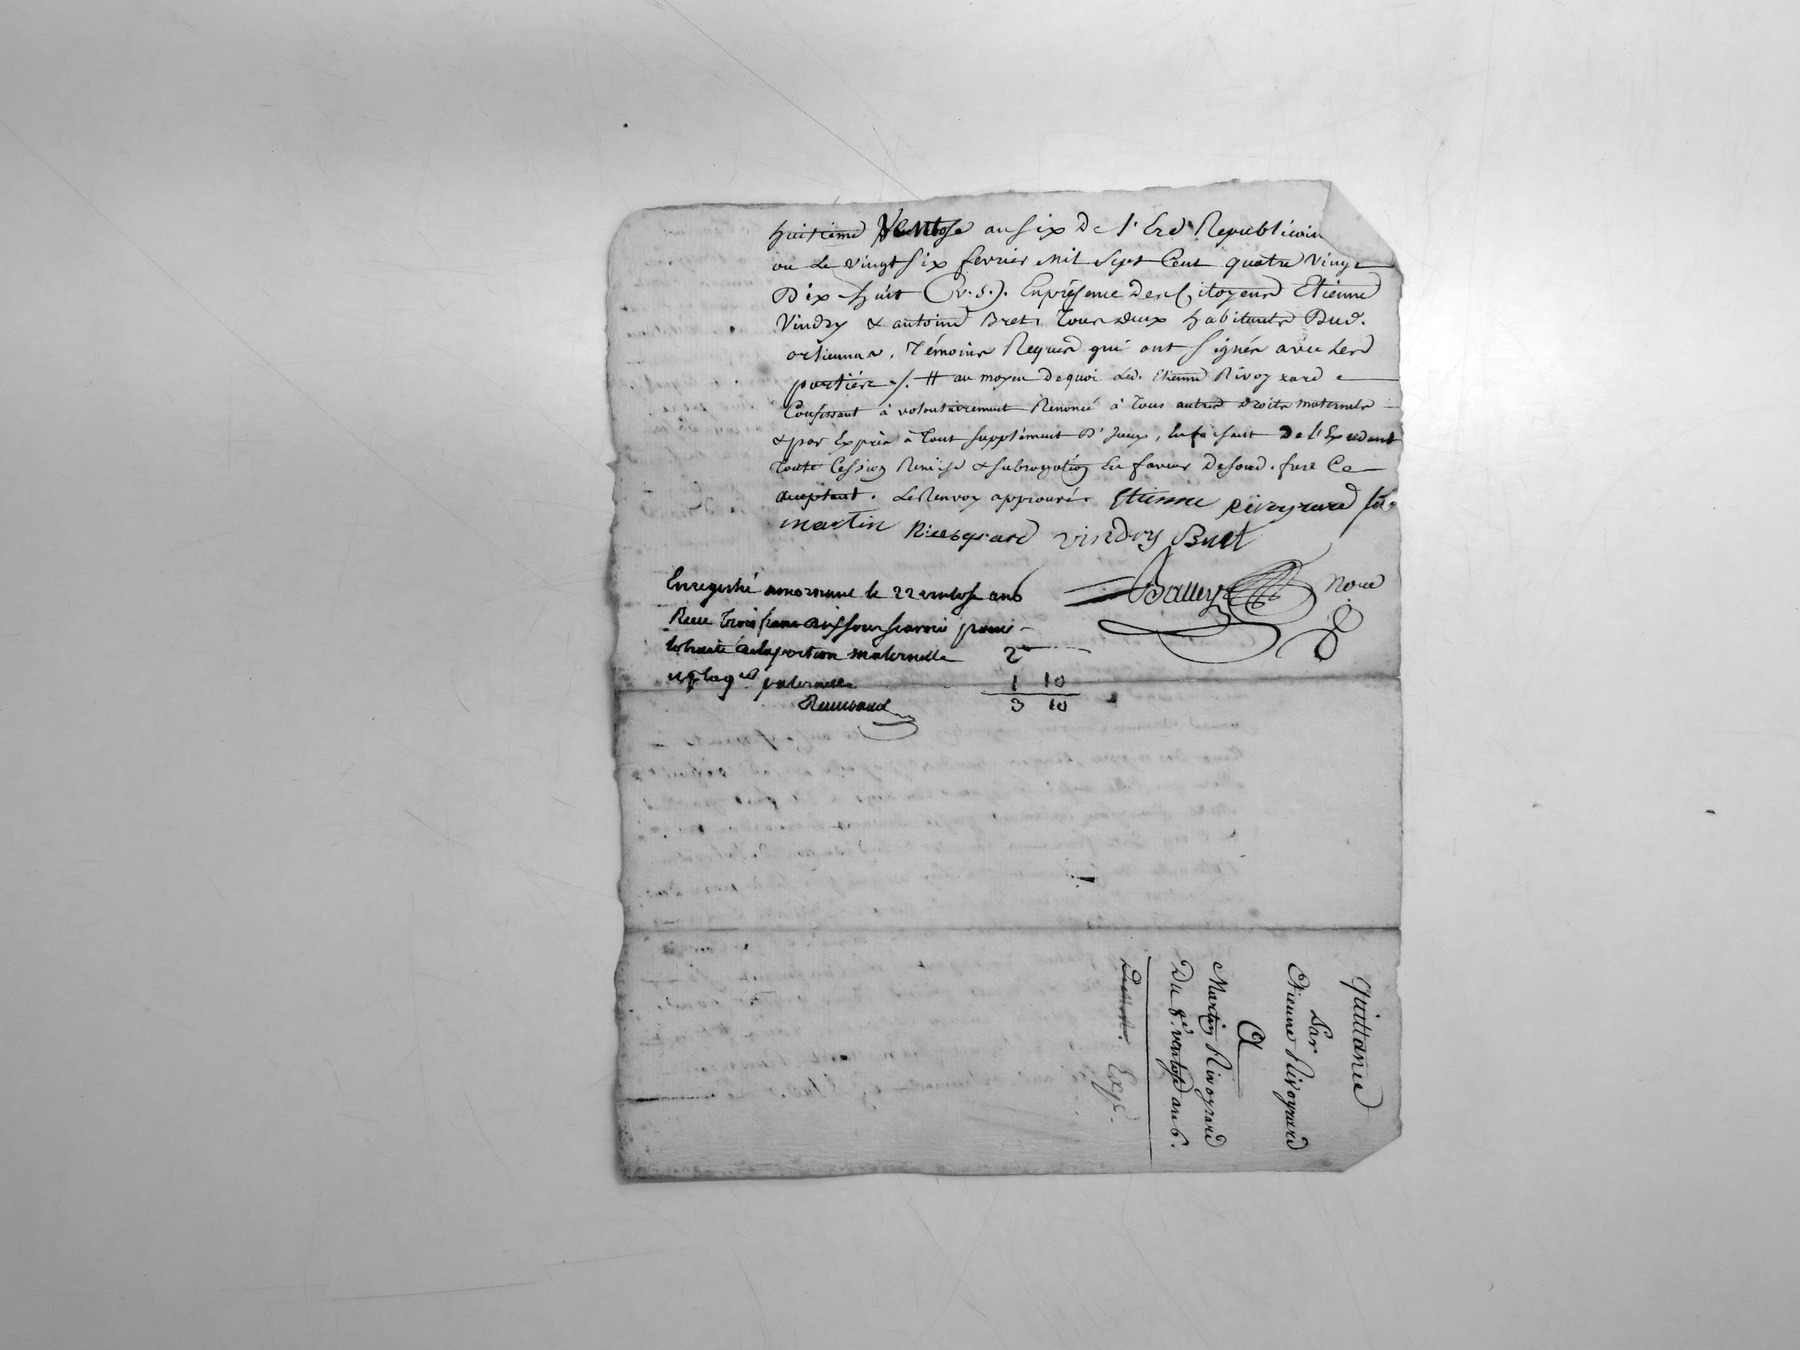 huitieme Ventose an six De l'Ere Republicain
ou Le vingt six fevrier Mil Sept Cent quatre vingt
Dix-huit (v. S.). En présence des Citoyens Etienne
Vindry & antoine Bret, Tous deux habitants Dud.
ortiennas, Témoins Requis qui ont signés avec Les
parties ./. # au moyen de quoi Led. Etienne Rivoyrard
Confessant à volontairement Renoncé à Tous autres droits maternels
& par Exprès à Tout supplément D'iceux, En faisant De l'Excedant
Toute Cession Remise & subrogation En faveur De soud. frere Ce
acceptant. Le Renvoy approuvé. Etienne Rivoyrard
martin Rivoyrard vindry Bret
Balley Not.
Enregistré a mornant le 22 ventose an 6
Reçu Trois francs dix sous savoir pour
le traité de la portion maternelle 2
paternelle 1 10
3 10
Quittance
Par
Etienne Rivoyrard
A
Martin Rivoyrard
Du 8e. ventose an 6.
Exp.